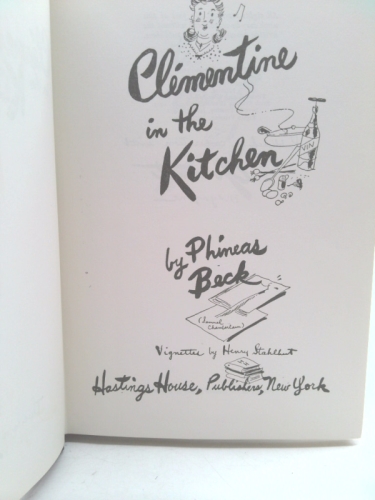 Clémentine
in the
Kitchen
by Phineas
Beck
(Samuel
Chamberlain)
Vignettes by Henry Stahlhut
Hastings House, Publishers, New York